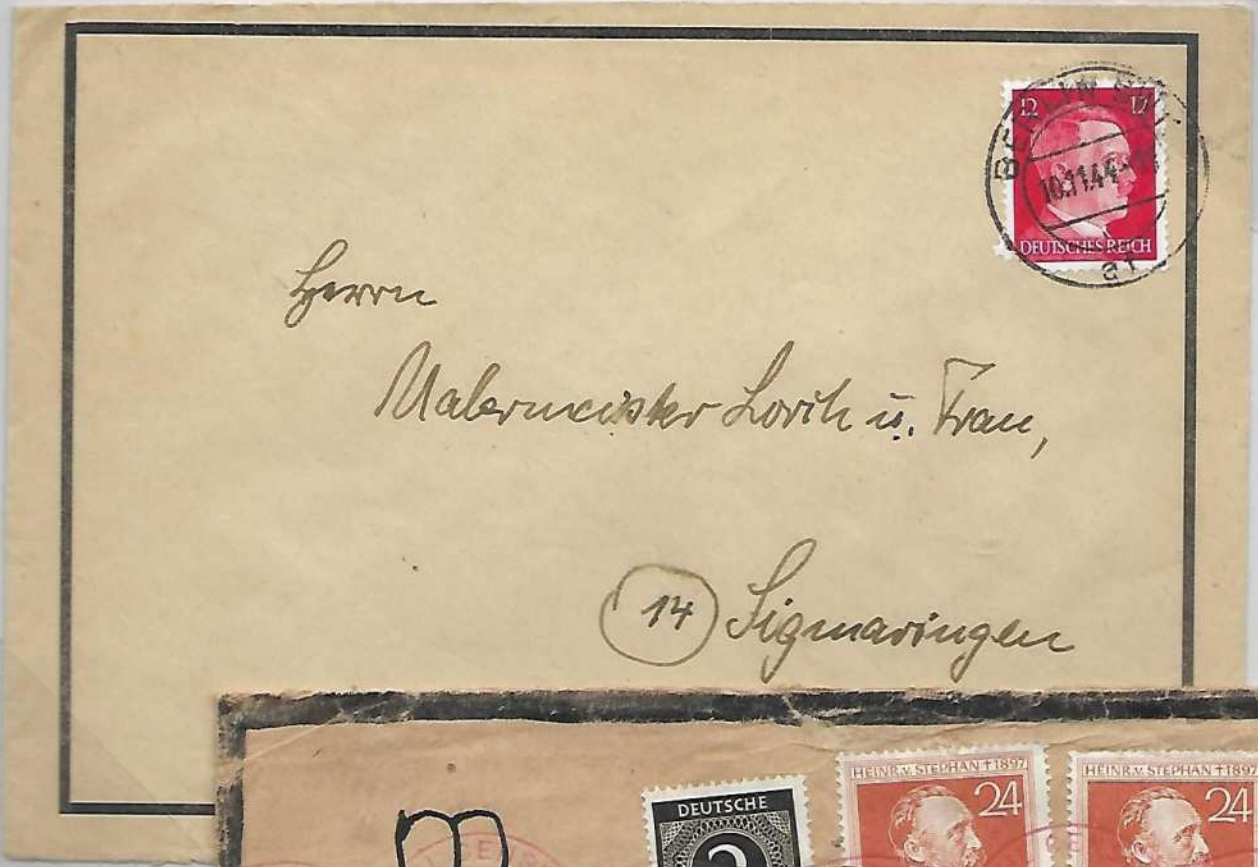 12 12
BERLIN
10.11.44
DEUTSCHES REICH
Herrn
Malermeister Lorch u. Frau,
14 Sigmaringen
DEUTSCHE
HEINR. v. STEPHAN † 1897
24
HEINR. v. STEPHAN † 1897
24